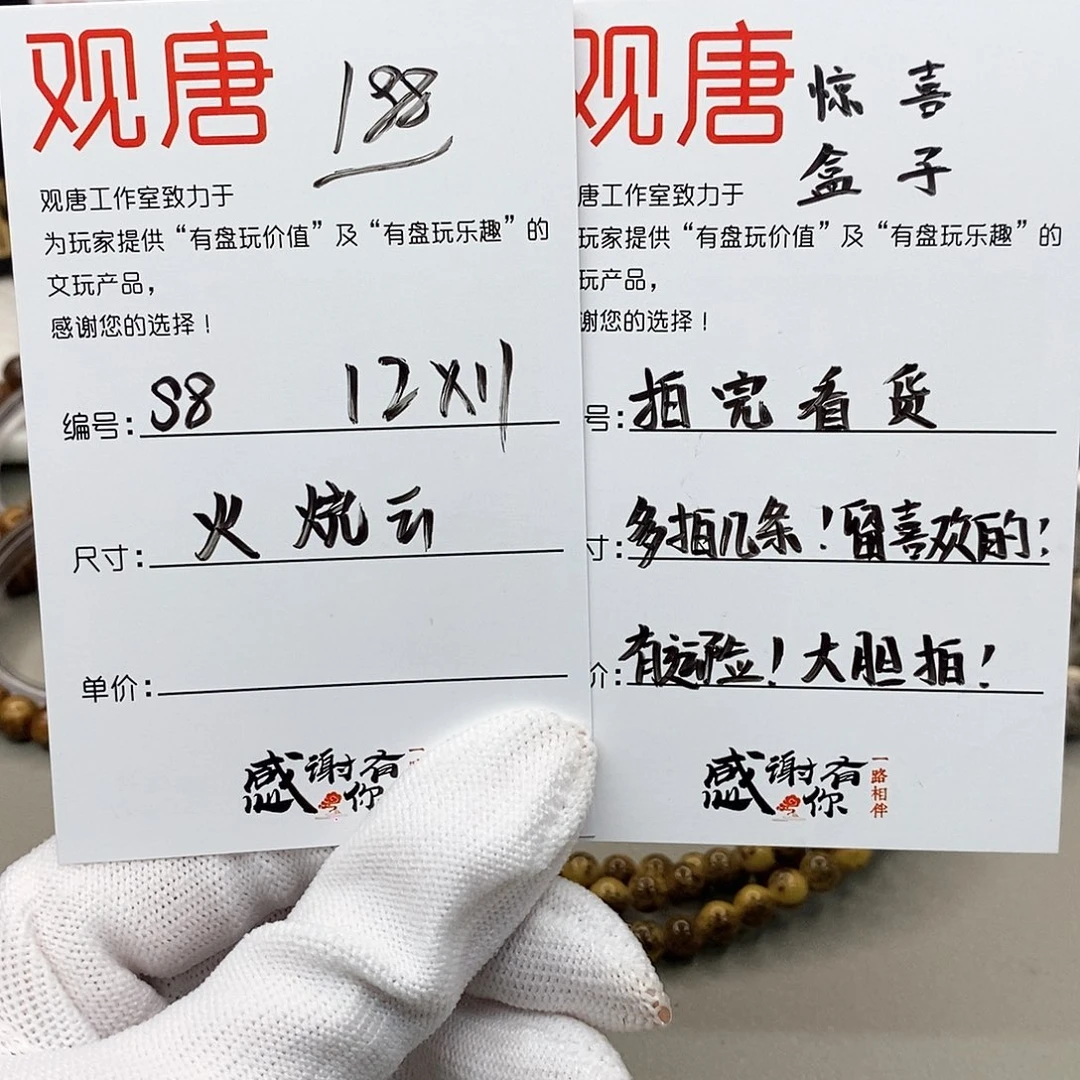 观唐 188
观唐工作室致力于
为玩家提供“有盘玩价值”及“有盘玩乐趣”的
文玩产品，
感谢您的选择！
编号: S8 12X11
尺寸: 火烧云
单价:
感谢有你
观唐 惊喜
盒子
唐工作室致力于
玩家提供“有盘玩价值”及“有盘玩乐趣”的
玩产品，
谢您的选择！
号: 拍完看货
寸: 多拍几条！留喜欢的！
价: 有运险！大胆拍！
感谢有你
一路相伴